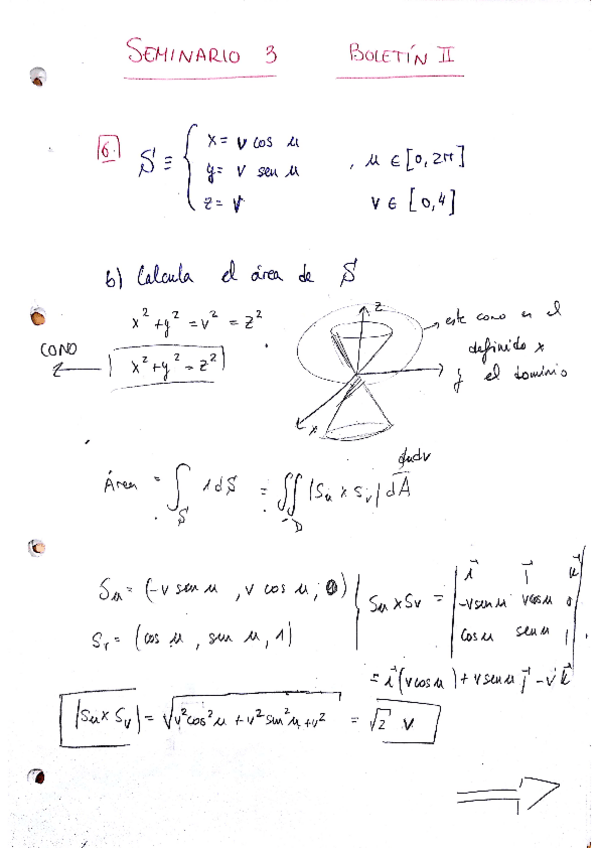 SEMINARIO 3 BOLETÍN II
6.
S ≡ { x = v cos u
y = v sen u , u ∈ [0, 2π]
z = v v ∈ [0, 4]
b) Calcula el área de S
x² + y² = v² = z²
CONO ← x² + y² = z²
z
x
este cono es el
definido x
el dominio
Área = ∫_S 1 dS = ∬_D |Su × Sv| dA
dudv
Su = (-v sen u, v cos u, 0)
Sv = (cos u, sen u, 1)
Su × Sv = | i⃗ j⃗ k⃗ |
| -v sen u v cos u 0 |
| cos u sen u 1 |
= i⃗ (v cos u) + v sen u j⃗ - v k⃗
|Su × Sv| = √(v² cos² u + v² sin² u + v²) = √2 v